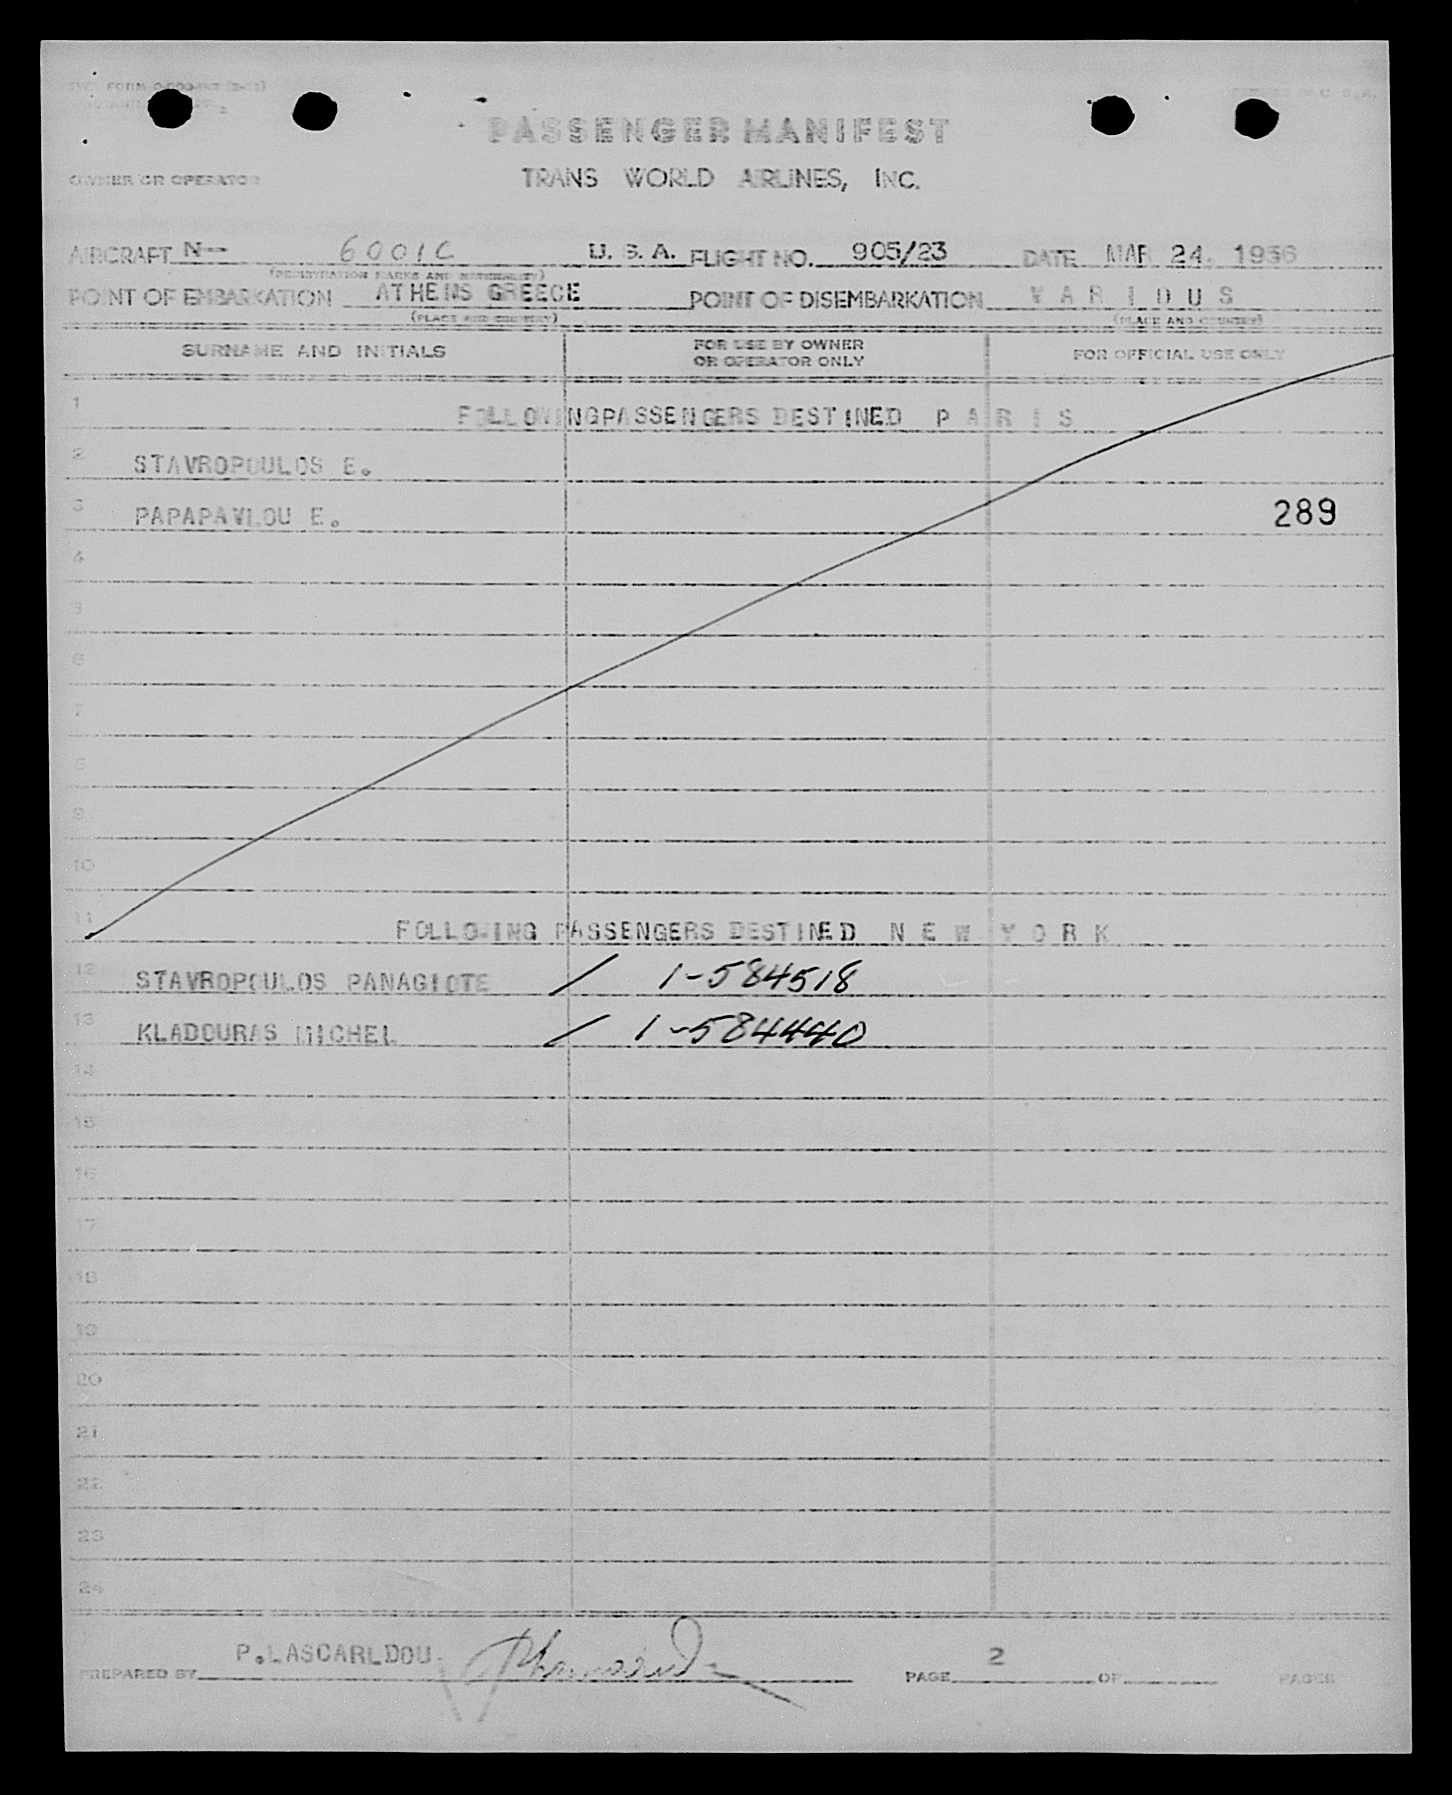 PASSENGER MANIFEST
OWNER OR OPERATOR TRANS WORLD AIRLINES, INC.
AIRCRAFT N-- 6001C U. S. A. FLIGHT NO. 905/23 DATE MAR 24. 1956
(REGISTRATION MARKS AND NATIONALITY)
POINT OF EMBARKATION ATHENS GREECE POINT OF DISEMBARKATION V A R I O U S
(PLACE AND COUNTRY) (PLACE AND COUNTRY)
SURNAME AND INITIALS FOR USE BY OWNER OR OPERATOR ONLY FOR OFFICIAL USE ONLY
1 FOLLOWINGPASSENGERS DESTINED P A R I S
2 STAVROPOULOS E.
3 PAPAPAVLOU E. 289
4
5
6
7
8
9
10
11 FOLLOWING PASSENGERS DESTINED N E W Y O R K
12 STAVROPOULOS PANAGIOTE / 1-584518
13 KLADOURAS MICHEL / 1-584440
14
15
16
17
18
19
20
21
22
23
24
PREPARED BY P.LASCARIDOU. PAGE 2 OF PAGES